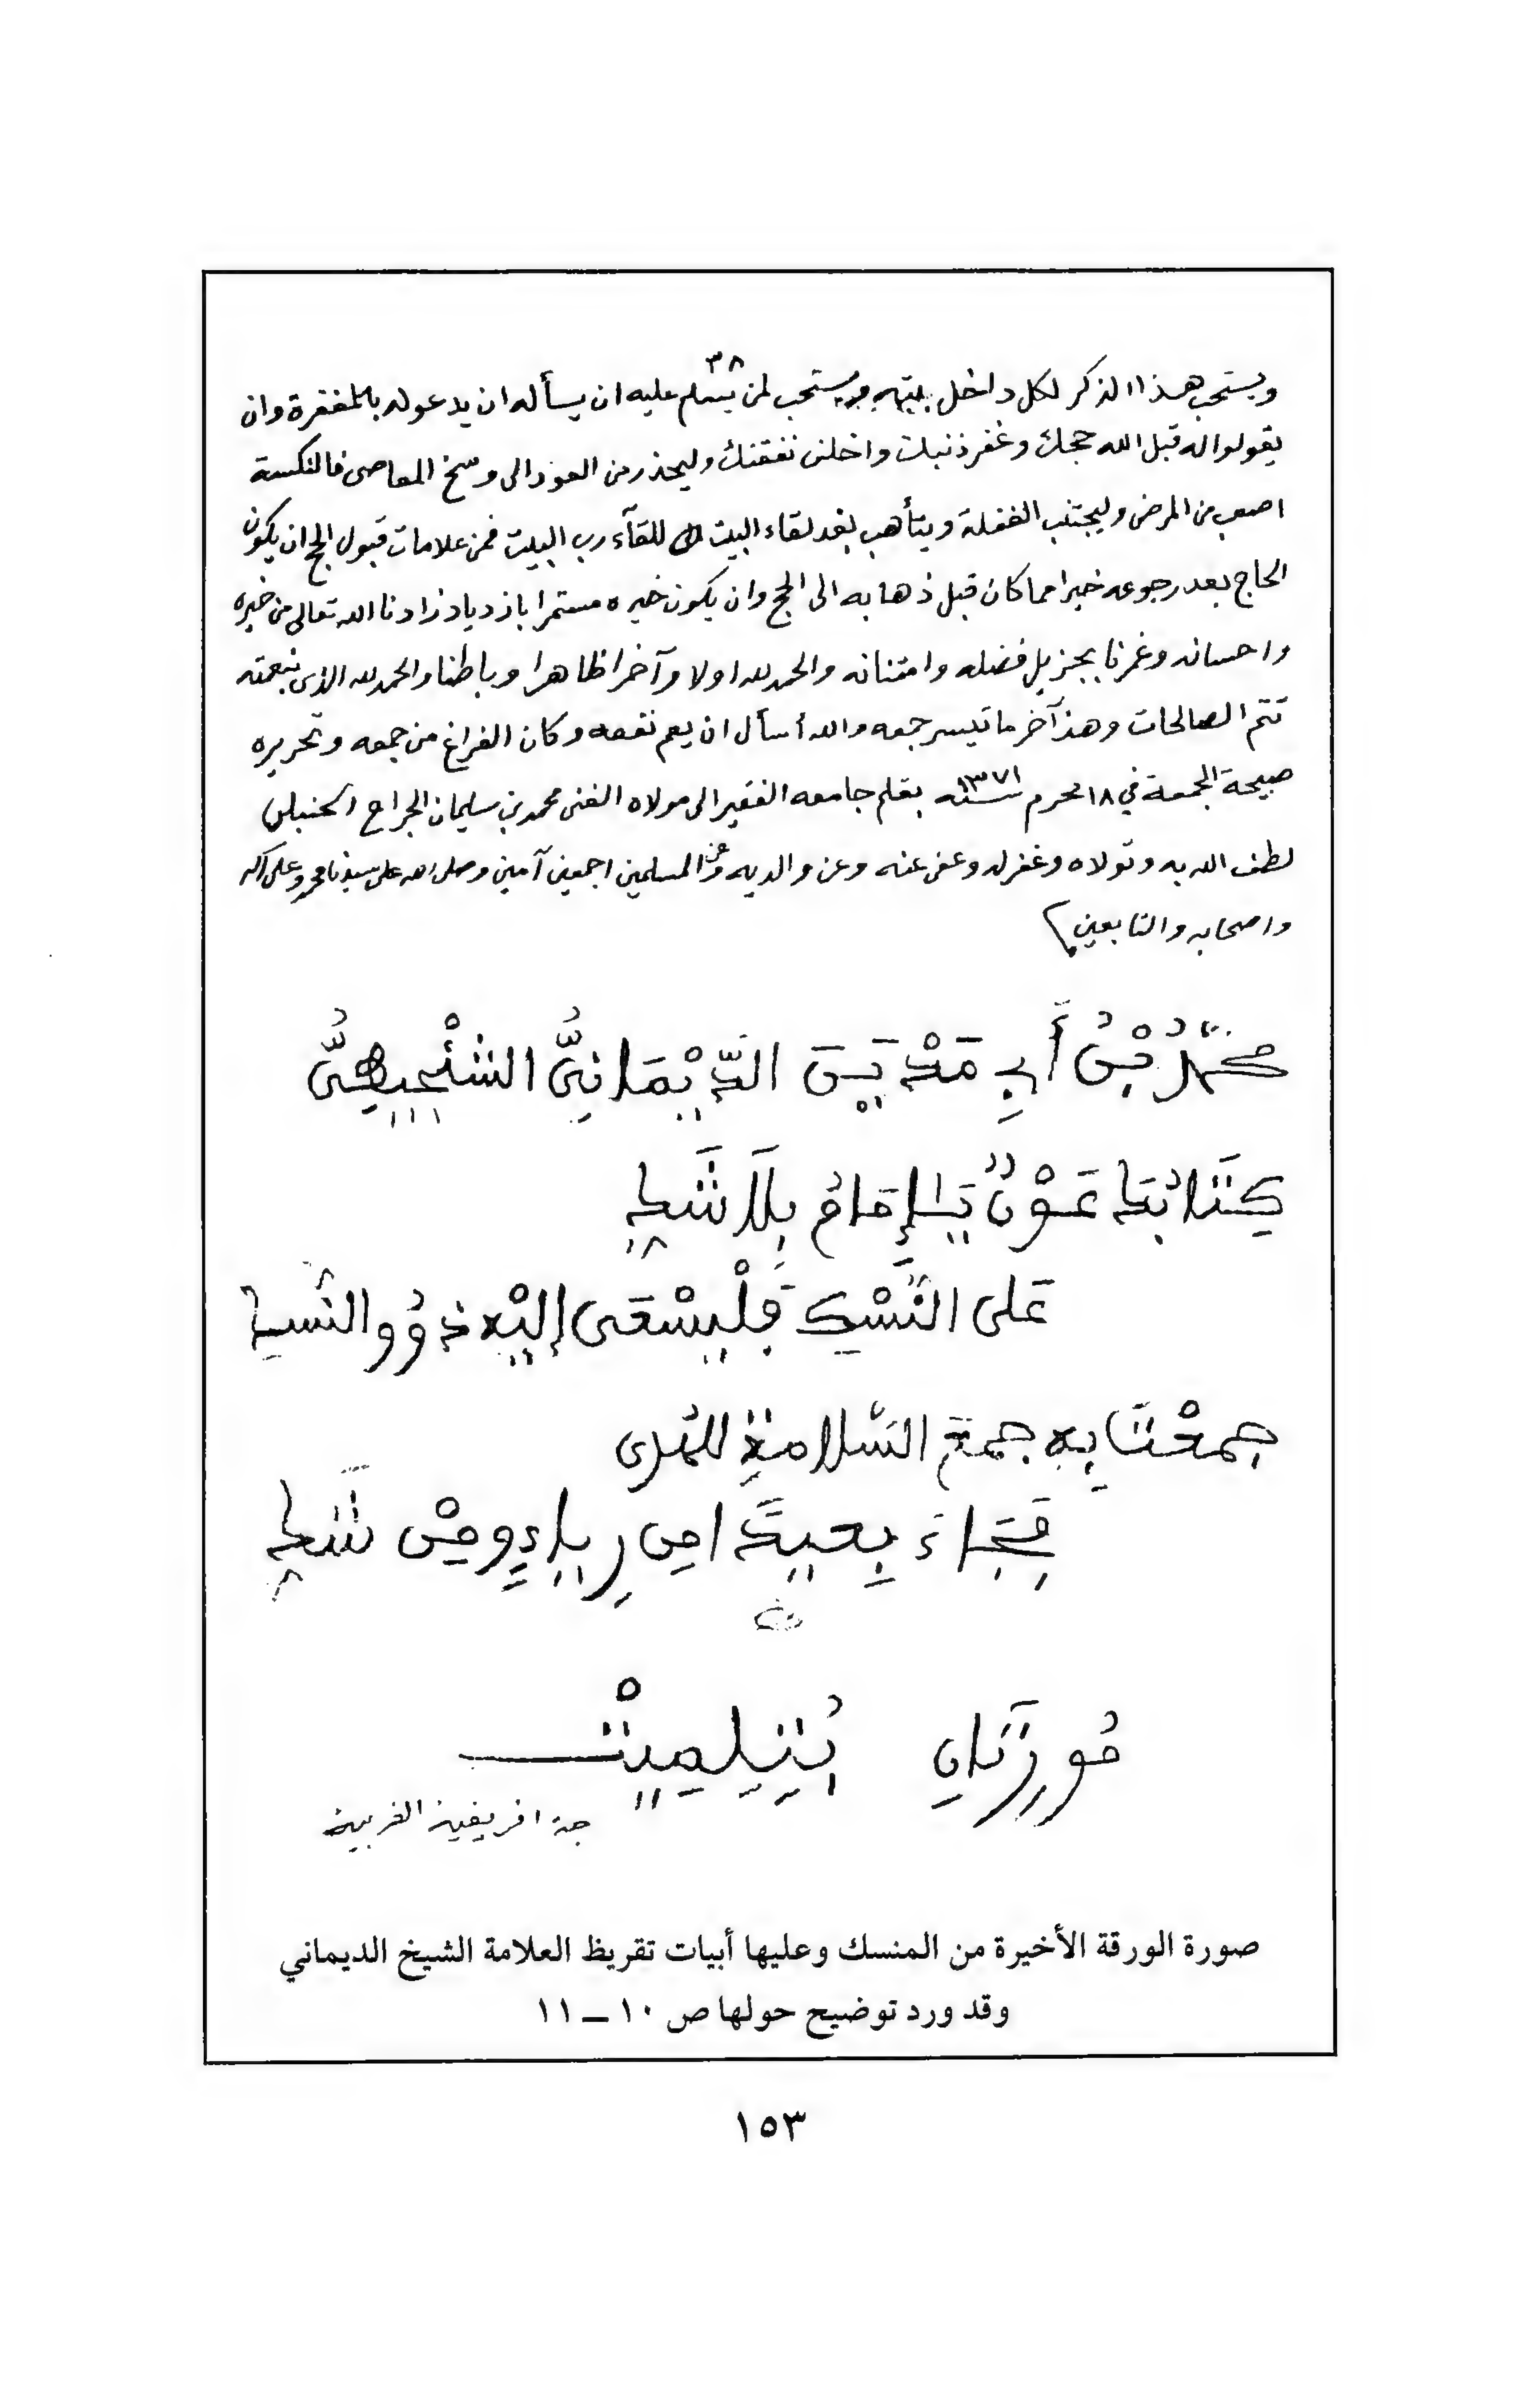 ٣٨
ويستحب هذا الذكر لكل داخل بيته ويستحب لمن يسلم عليه ان يسأله ان يدعو له بالمغفرة وان
يقولوا له قبل الله حجك وغفر ذنبك واخلف نفقتك وليحذر من العود الى وسخ المعاصى فالنكسة
اصعب من المرض وليجتنب الغفلة ويتأهب بعد لقاء البيت للقآء رب البيت فمن علامات قبول الحج ان يكون
الحاج بعد رجوعه خيرا مما كان قبل ذهابه الى الحج وان يكون خيره مستمرا بازدياد زادنا الله تعالى من خيره
واحسانه وغمرنا بجزيل فضله وامتنانه والحمد لله اولا وآخرا ظاهرا وباطنا والحمد لله الذى بنعمته
تتم الصالحات وهذا آخر ما تيسر جمعه والله أسأل ان يعم نفعه وكان الفراغ من جمعه وتحريره
صبيحة الجمعة في ١٨ محرم سنه ١٣٧١ بقلم جامعه الفقير الى مولاه الغنى محمد بن سليمان الجراح الحنبلى
لطف الله به وتولاه وغفر له وعفى عنه وعن والديه وعن المسلمين اجمعين آمين وصلى الله على سيدنا محمد وعلى آله
واصحابه والتابعين
محمد بن أبي مدين الديماني
كتابك عون يا إمام بلا شك
على النسك فليسعى إليه ذوو النسك
جمعت به جمع السلامة للمرى
فجاء بعيدا من رياء ومن شك
مورتان بتلميت
جهة افريقية الغربية
صورة الورقة الأخيرة من المنسك وعليها أبيات تقريظ العلامة الشيخ الديماني
وقد ورد توضيح حولها ص ١٠ – ١١
١٥٣